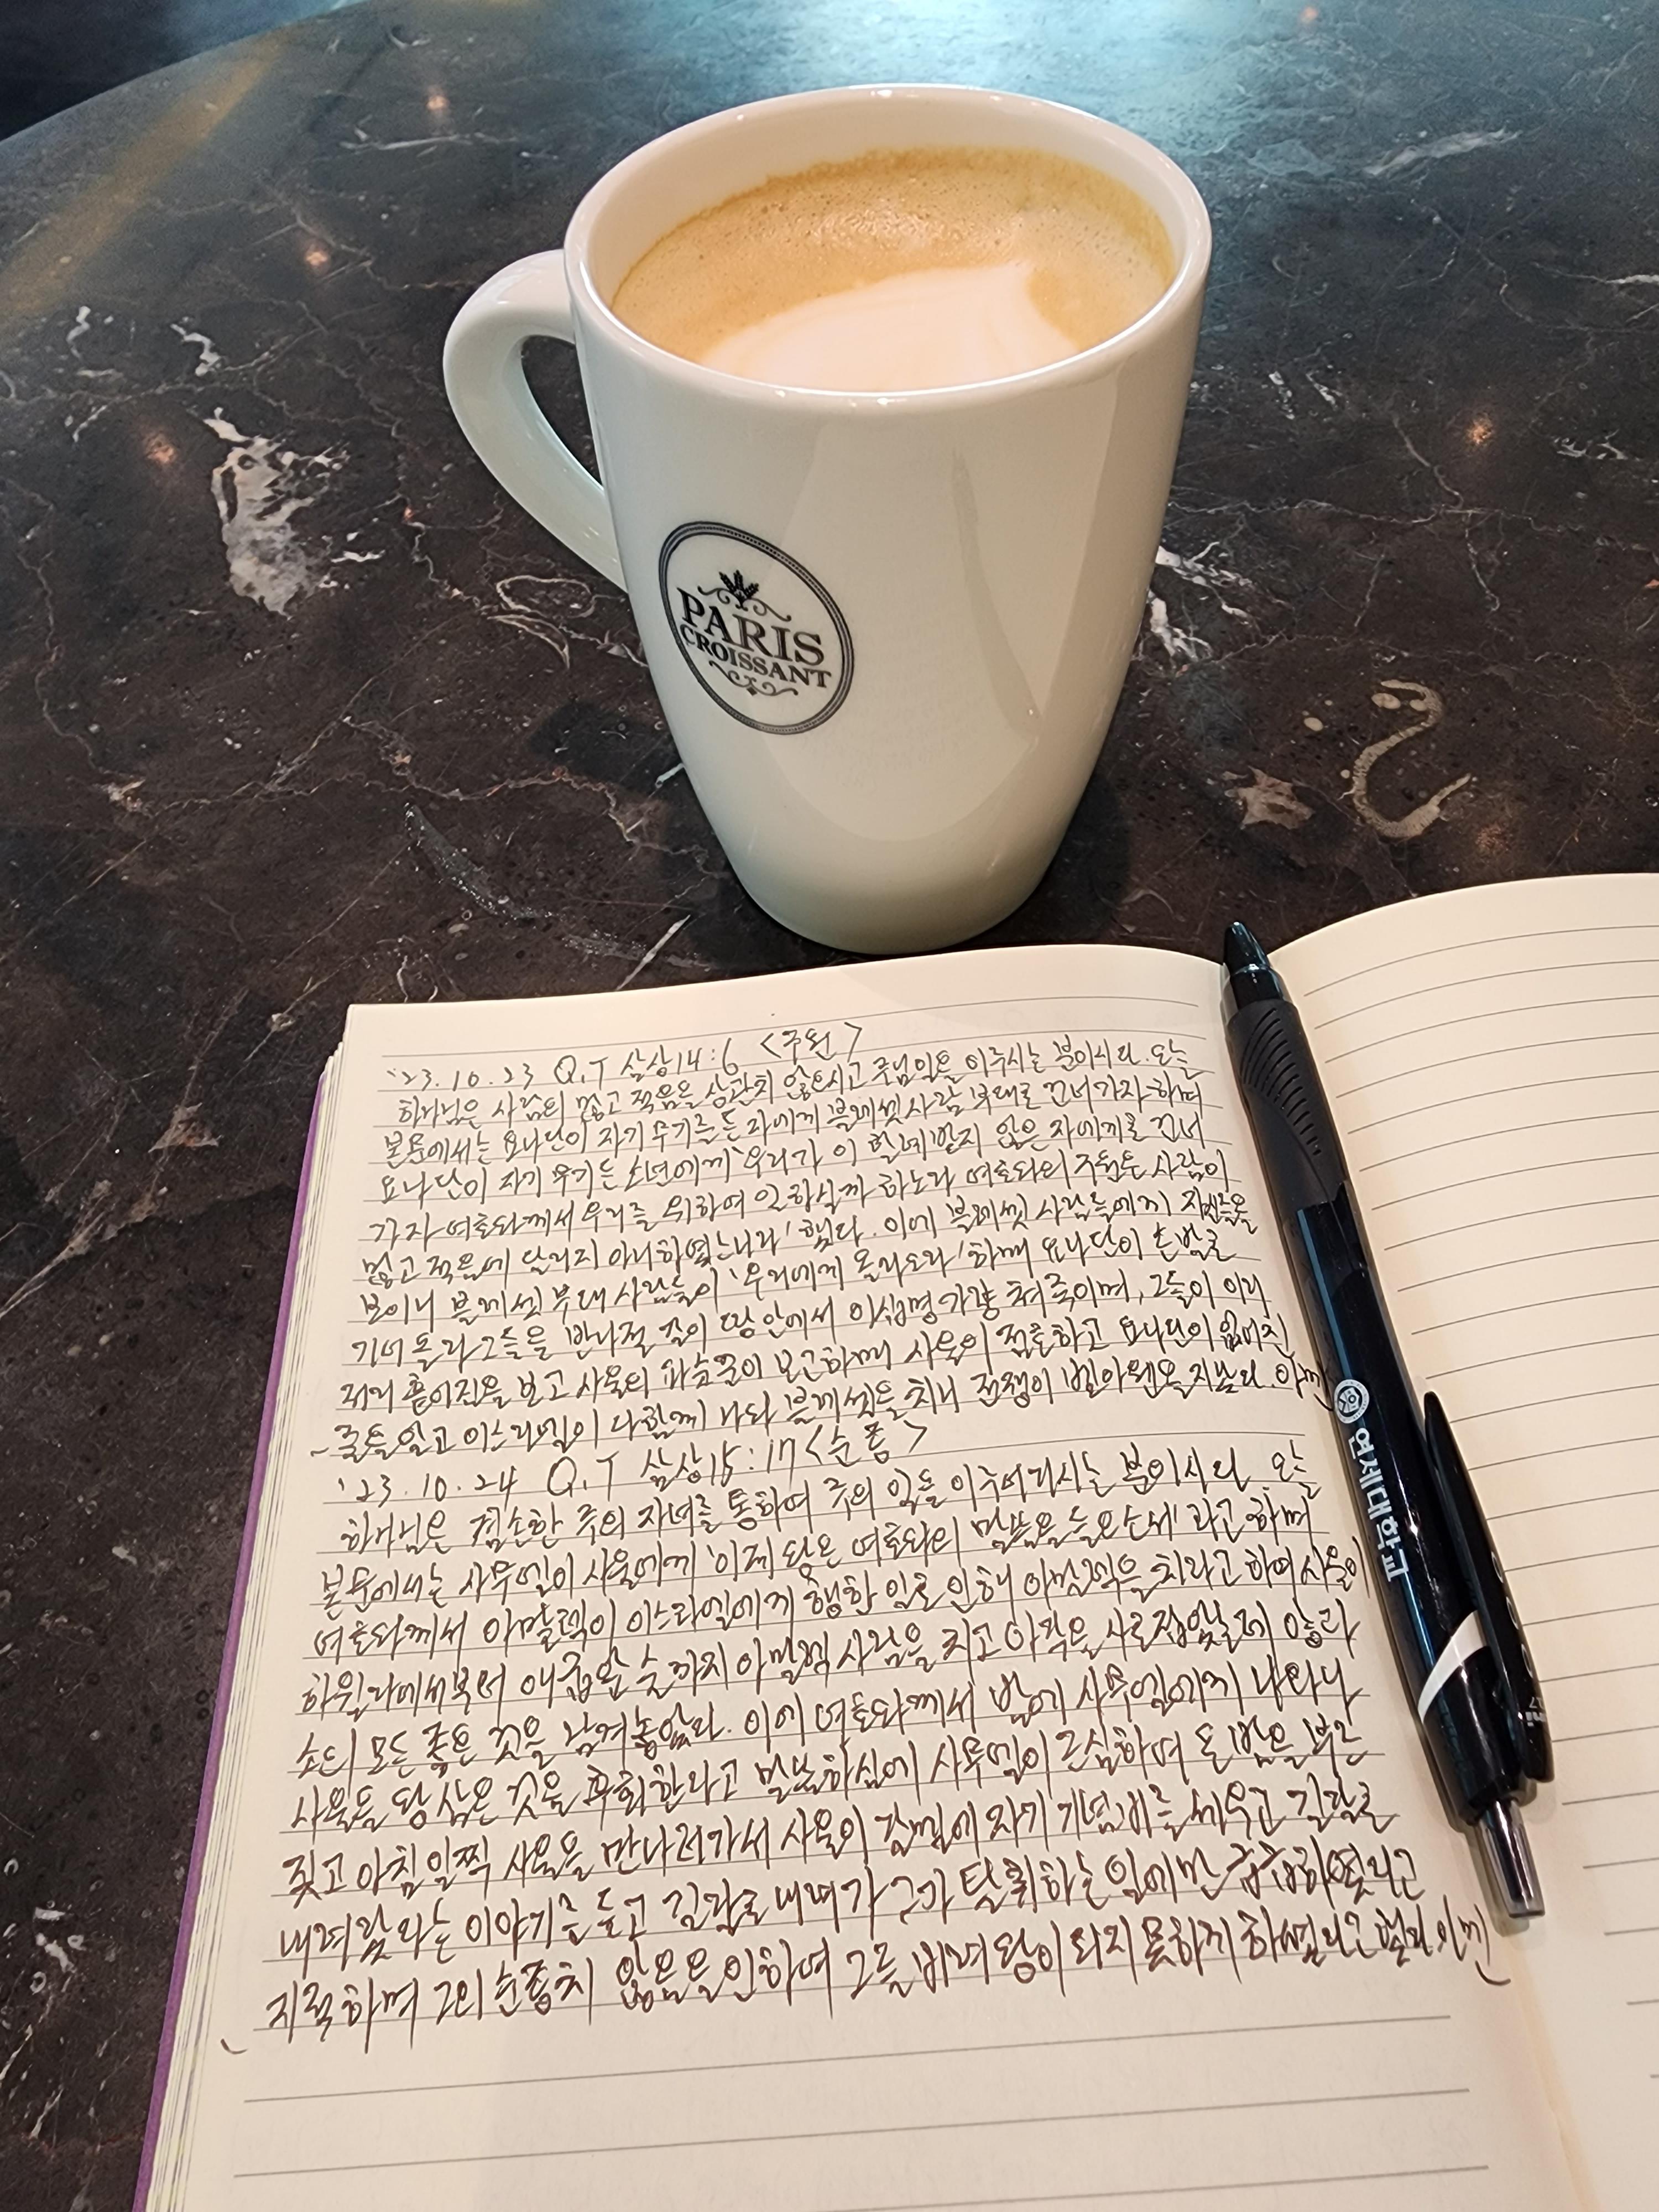 PARIS
CROISSANT
'23.10.23 Q.T 삼상14:6 <구원>
하나님은 사람의 많고 적음을 상관치 않으시고 주님 일을 이루시는 분이시라. 오늘
본문에서는 요나단이 자기 무기를 든 자에게 블레셋 사람 부대로 건너가자 하며
요나단이 자기 무기 든 소년에게 '우리가 이 할례 받지 않은 자에게로 건너
가자 여호와께서 우리를 위하여 일하실까 하노라 여호와의 구원은 사람이
많고 적음에 달리지 아니하였느니라' 했다. 이에 블레셋 사람들에게 자신들을
보이니 블레셋 부대 사람들이 '우리에게 올라오라' 하매 요나단이 손발로
기어 올라 그들을 반나절 갈이 땅 안에서 이십명 가량 쳐죽이며, 그들이 이리
저리 흩어짐을 보고 사울의 파숫군이 보고하매 사울이 점호하고 요나단이 없어진
줄을 알고 이스라엘이 다함께 나와 블레셋을 치니 전쟁이 벧아웬을 지났다. 아멘
'23.10.24 Q.T 삼상15:17 <순종>
하나님은 겸손한 주의 자녀를 통하여 주의 일을 이루어가시는 분이시라. 오늘
본문에서는 사무엘이 사울에게 '이제 왕은 여호와의 말씀을 들으소서' 라고 하며
여호와께서 아말렉이 이스라엘에게 행한 일로 인해 아말렉을 치라고 하여 사울이
하윌라에서부터 애굽앞 술까지 아말렉 사람을 치고 아각을 사로잡았는데 양과
소의 모든 좋은 것을 남겨놓았다. 이에 여호와께서 밤에 사무엘에게 나타나
사울을 왕 삼은 것을 후회한다고 말씀하심에 사무엘이 근심하며 온 밤을 부르
짖고 아침 일찍 사울을 만나러가서 사울이 갈멜에 자기 기념비를 세우고 길갈로
내려갔다는 이야기를 듣고 길갈로 내려가 그가 탈취하는 일에만 급급하였다고
지적하며 그의 순종치 않음을 인하여 그를 버려 왕이 되지 못하게 하셨다고 했다. 아멘
연세대학교